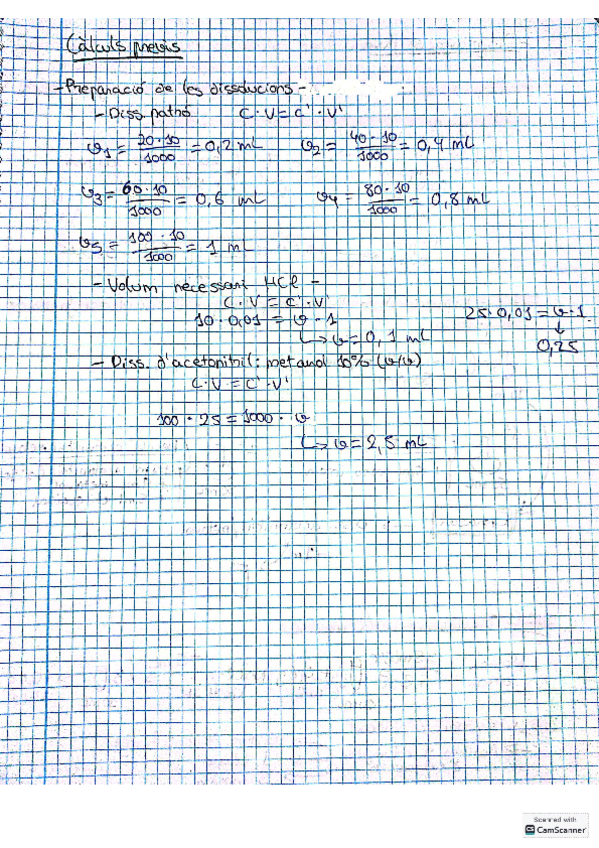 Càlculs previs
-Preparació de les dissolucions-
- Diss. patró C·V=C'·V'
v1 = 20·10/1000 = 0,2 mL v2 = 40·10/1000 = 0,4 mL
v3 = 60·10/1000 = 0,6 mL v4 = 80·10/1000 = 0,8 mL
v5 = 100·10/1000 = 1 mL
- Volum necessari HCl -
C·V = C'·V'
10·0,01 = v·1 25·0,01 = v·1
↳ v = 0,1 mL ↓
0,25
- Diss. d'acetonitril: metanol 10% (v/v)
C·V = C'·V'
100·25 = 1000·v
↳ v = 2,5 mL
Scanned with
CS CamScanner